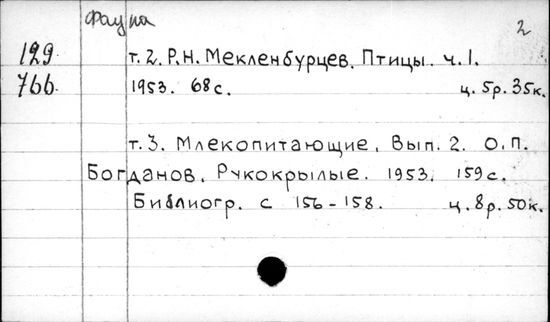 Фауна
2
129 т. 2. Р.Н. Мекленбурцев. Птицы. ч.1.
766 1953. 68с. ц. 5р. 35к.
т. 3. Млекопитающие. Вып. 2. О.П.
Богданов. Рукокрылые. 1953. 159с.
Библиогр. с 156-158. ц. 8р. 50к.